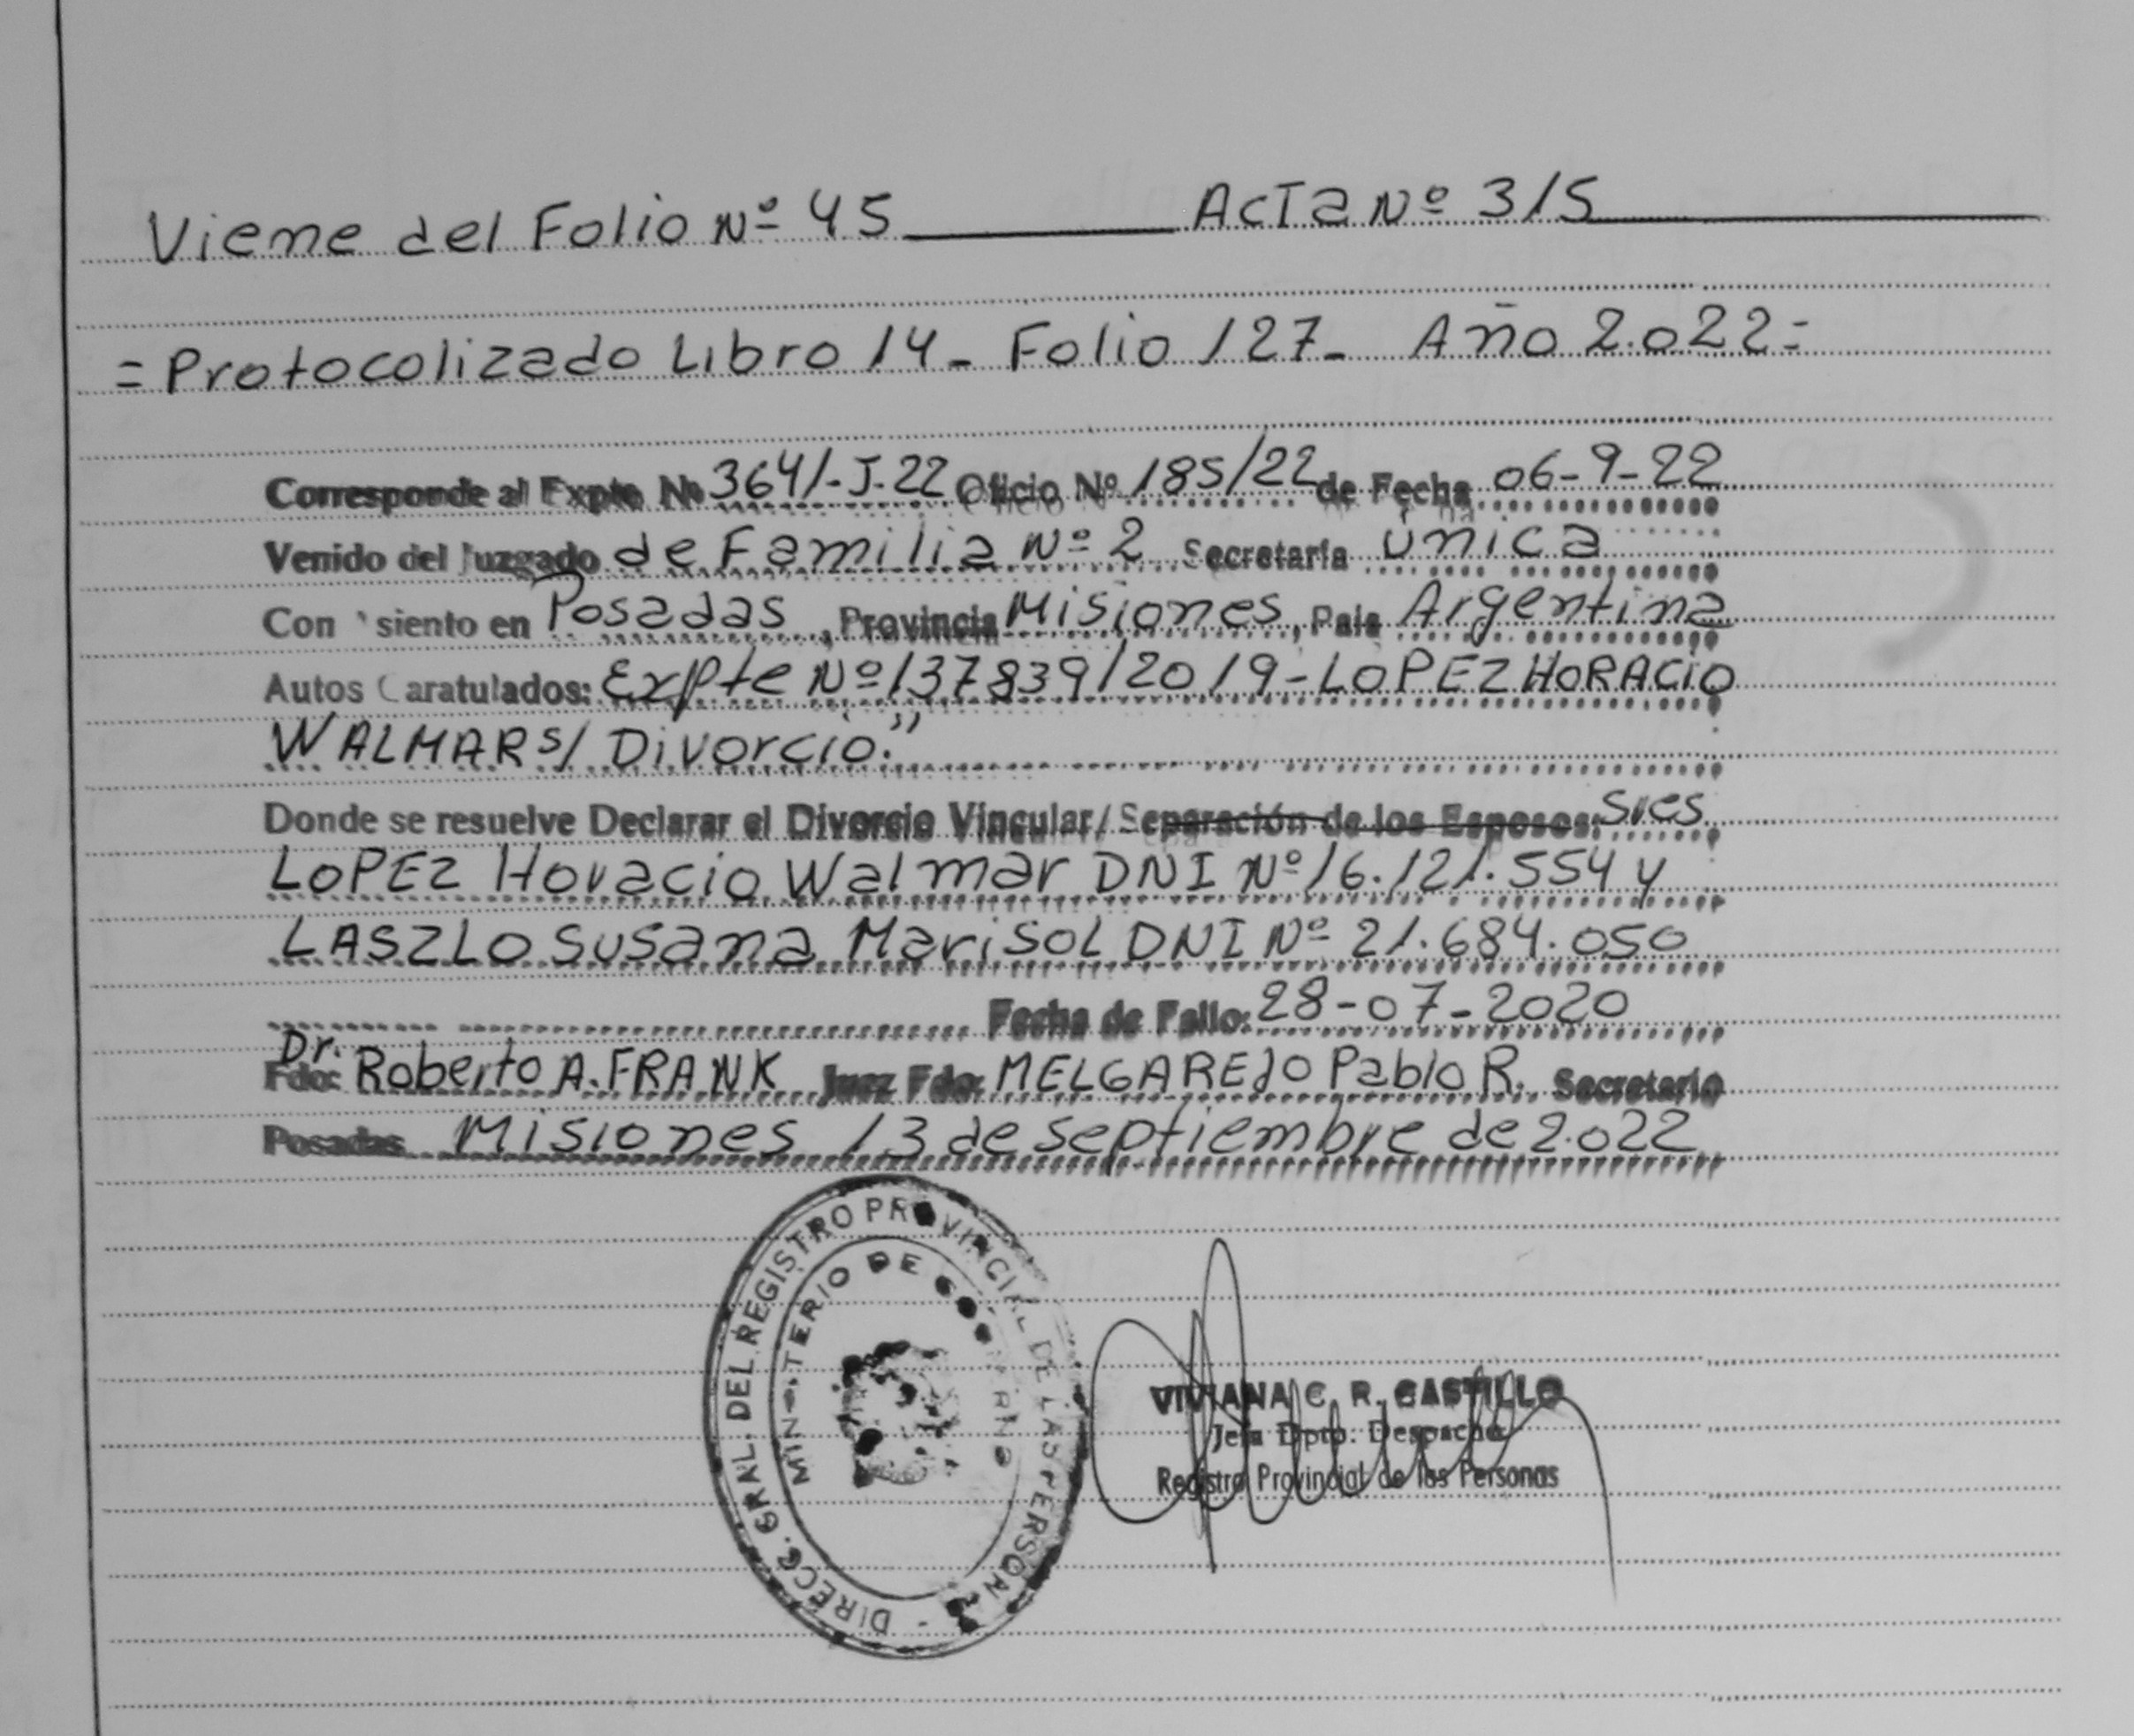 Viene del Folio Nº 45 ACTA Nº 315
= Protocolizado Libro 14 - Folio 127 - Año 2.022=
Corresponde al Expte Nº 3641-J-22 Oficio Nº 185/22 de Fecha 06-9-22
Venido del Juzgado de Familia Nº 2 Secretaría única
Con siento en Posadas, Provincia Misiones, País Argentina
Autos Caratulados: Expte Nº 137839/2019-LOPEZ HORACIO
WALMAR s/ Divorcio."
Donde se resuelve Declarar el Divorcio Vincular/Separación de los Esposos: Sres
LOPEZ Horacio Walmar DNI Nº 16.121.554 y
LASZLO Susana Marisol DNI Nº 21.684.050
Fecha de Fallo: 28-07-2020
Dr.
Fdo: Roberto A. FRANK Juez Fdo: MELGAREJO Pablo R. Secretario
Posadas Misiones 13 de septiembre de 2.022
DIRECC. GRAL. DEL REGISTRO PROVINCIAL DE LAS PERSONAS
MINISTERIO DE GOBIERNO
VIVIANA C. R. CASTILLO
Jefa Dpto. Despacho
Registro Provincial de las Personas